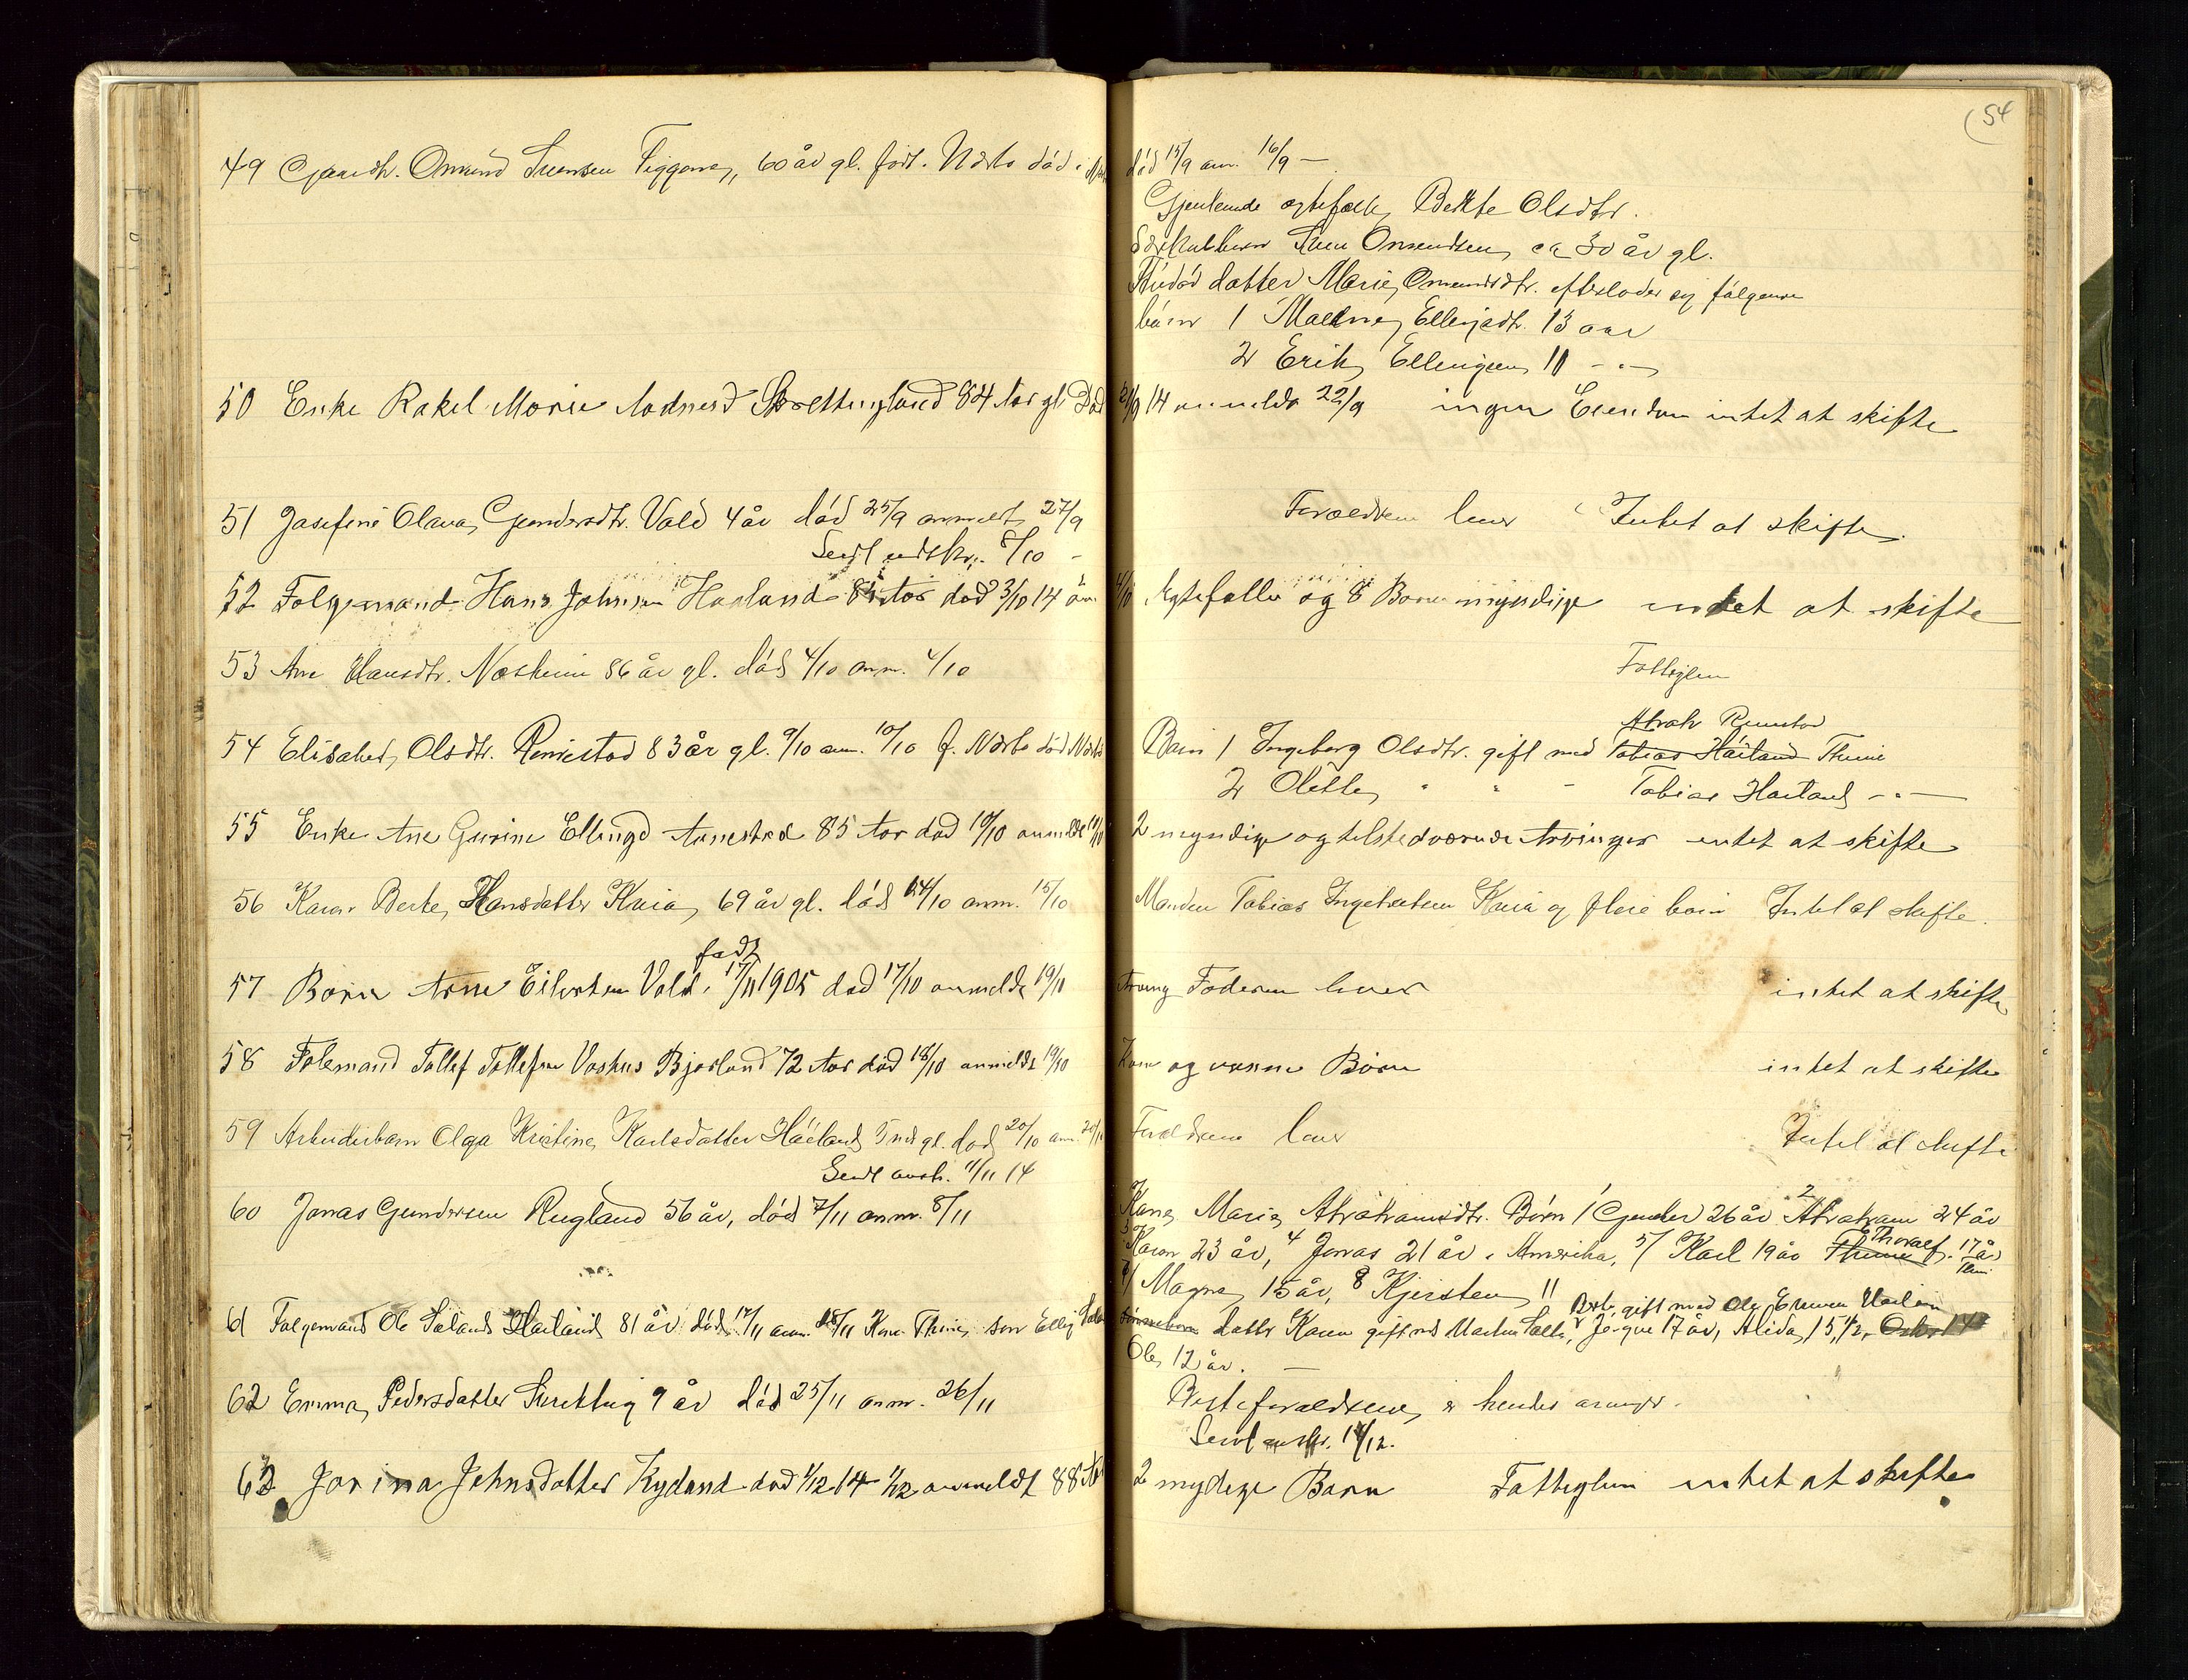 54
49 Gaardb. Omund Svensen Tiggena, 60 år gl. født. Nærbø død i død 15/9 anm. 16/9 —
Gjenlevende ægtefælle Berthe Olsdtr.
Særkulbarn Sven Omundsen, ca 30 år gl.
datter Marie Omundsdtr. efterlader sig følgende
børn 1 Malene Ellingsdtr. 13 aar
2 Erik Ellingsen 11 - " -
50 Enke Rakel Marie Aadnesd Skrettingland 84 Aar gl Død 21/9 14 anmeldt 22/9 ingen Eiendom intet at skifte
51 Josefine Olava Gundersdtr. Vold 4 år død 25/9 anmeldt 27/9 Forældrene lever Intet at skifte.
Sendt udskr. 8/10 -
52 Folgemand Hans Johnsen Haaland 85 Aar død 3/10 14 an 4/10 Ægtefælle og 8 Børn myndige intet at skifte
53 Ane Hansdtr. Næsheim 86 år gl. død 4/10 anm. 4/10 Fattiglem
54 Elisabet Olsdtr. Remestad 83 år gl. 9/10 anm. 10/10 f. Nærbø død Nærbø Børn 1 Ingeborg Olsdtr. gift med Tobias Håiland Abrah Remestad Thime
2 Olette " " - Tobias Hailand - " -
55 Enke Ane Gurine Ellingsd Aanestad 85 Aar død 10/10 anmeldt 10/10 2 myndige og tilstedværende Arvinger intet at skifte
56 Karen Berte Hansdatter Kvia, 69 år gl. død 14/10 anm. 15/10 Manden Tobias Ingebretsen Kvia og flere børn Intet at skifte.
født
57 Barn Arne Eilertsen Vold, 17/11 1905 død 17/10 anmeldt 19/10 Arving Faderen lever intet at skifte
58 Folemand Tollef Tollefsen Vashus Bjorland 72 Aar død 18/10 anmeldt 19/10 Kone og voxne Börn intet at skifte
59 Arbeiderbarn Olga Kristine Karlsdatter Håeland gl. død 20/10 anm. 20/10 Forældrene lever Intet at skifte
Sendt avsk. 11/11 14
60 Jonas Gundersen Rugland 56 år, død 7/11 anm. 8/11 Kone Marie Abrahamsdtr. Börn 1 Gunder 26 år 2 Abraham 24 år
3 Karen 23 år, 4 Jonas 21 år i Amerika, 5/ Karl 19 år Thime 6 Thoralf. 17 år
7/ Magne 15 år, 8 Kjersten 11
61 Folgemand Ole Håiland 81 år død 17/11 anm. 18/11 Kone Thrine, søn Elling datter Karen gift med Martin Salte, Berte, gift med Ole Jörgine 17 år, Alida, 15 1/2,
Ole, 12 år. —
62 Emma Pedersdatter Skretting 9 år død 25/11 anm. 26/11 Besteforældrene er hendes arvinger.
Sendt avskr. 14/12.
63 Jorina Johnsdatter Kydland død 1/12 14 1/12 anmeldt 88 Aar 2 mydige Barn Fattiglem intet at skifte